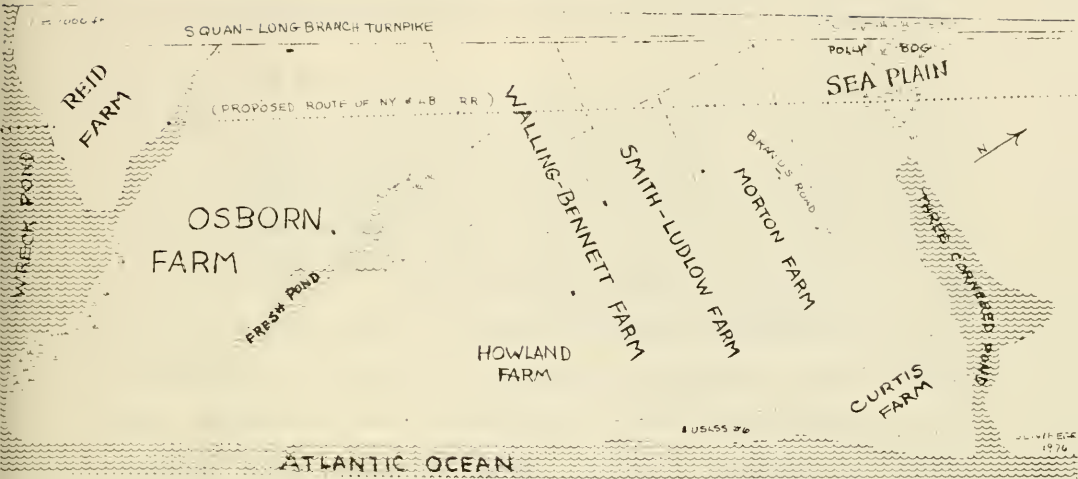 SQUAN-LONG BRANCH TURNPIKE
POLLY BOG
SEA PLAIN
REID
FARM
(PROPOSED ROUTE OF NY & LB RR)
N
WRECK POND
OSBORN
FARM
FRESH POND
WALLING-BENNETT FARM
SMITH-LUDLOW FARM
MORTON FARM
ROAD
THREE CORNERED POND
HOWLAND
FARM
CURTIS
FARM
USLSS #6
1976
ATLANTIC OCEAN